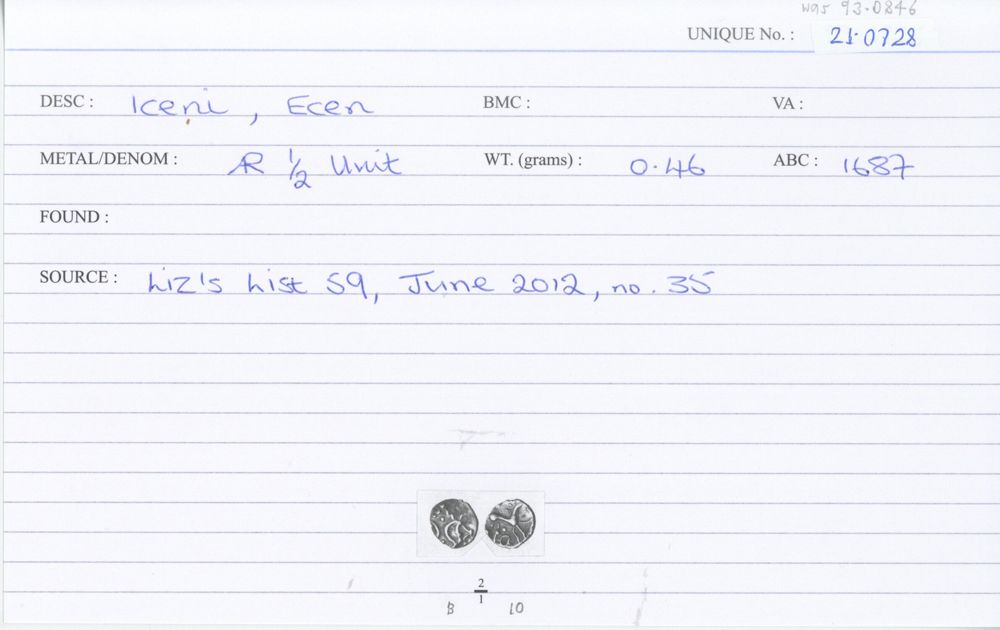 was 93.0846
UNIQUE No. : 21.0728
DESC : Iceni, Ecen BMC : VA :
METAL/DENOM : AR ½ Unit WT. (grams) : 0.46 ABC : 1687
FOUND :
SOURCE : Liz's List 59, June 2012, no. 35
2
1
B 10